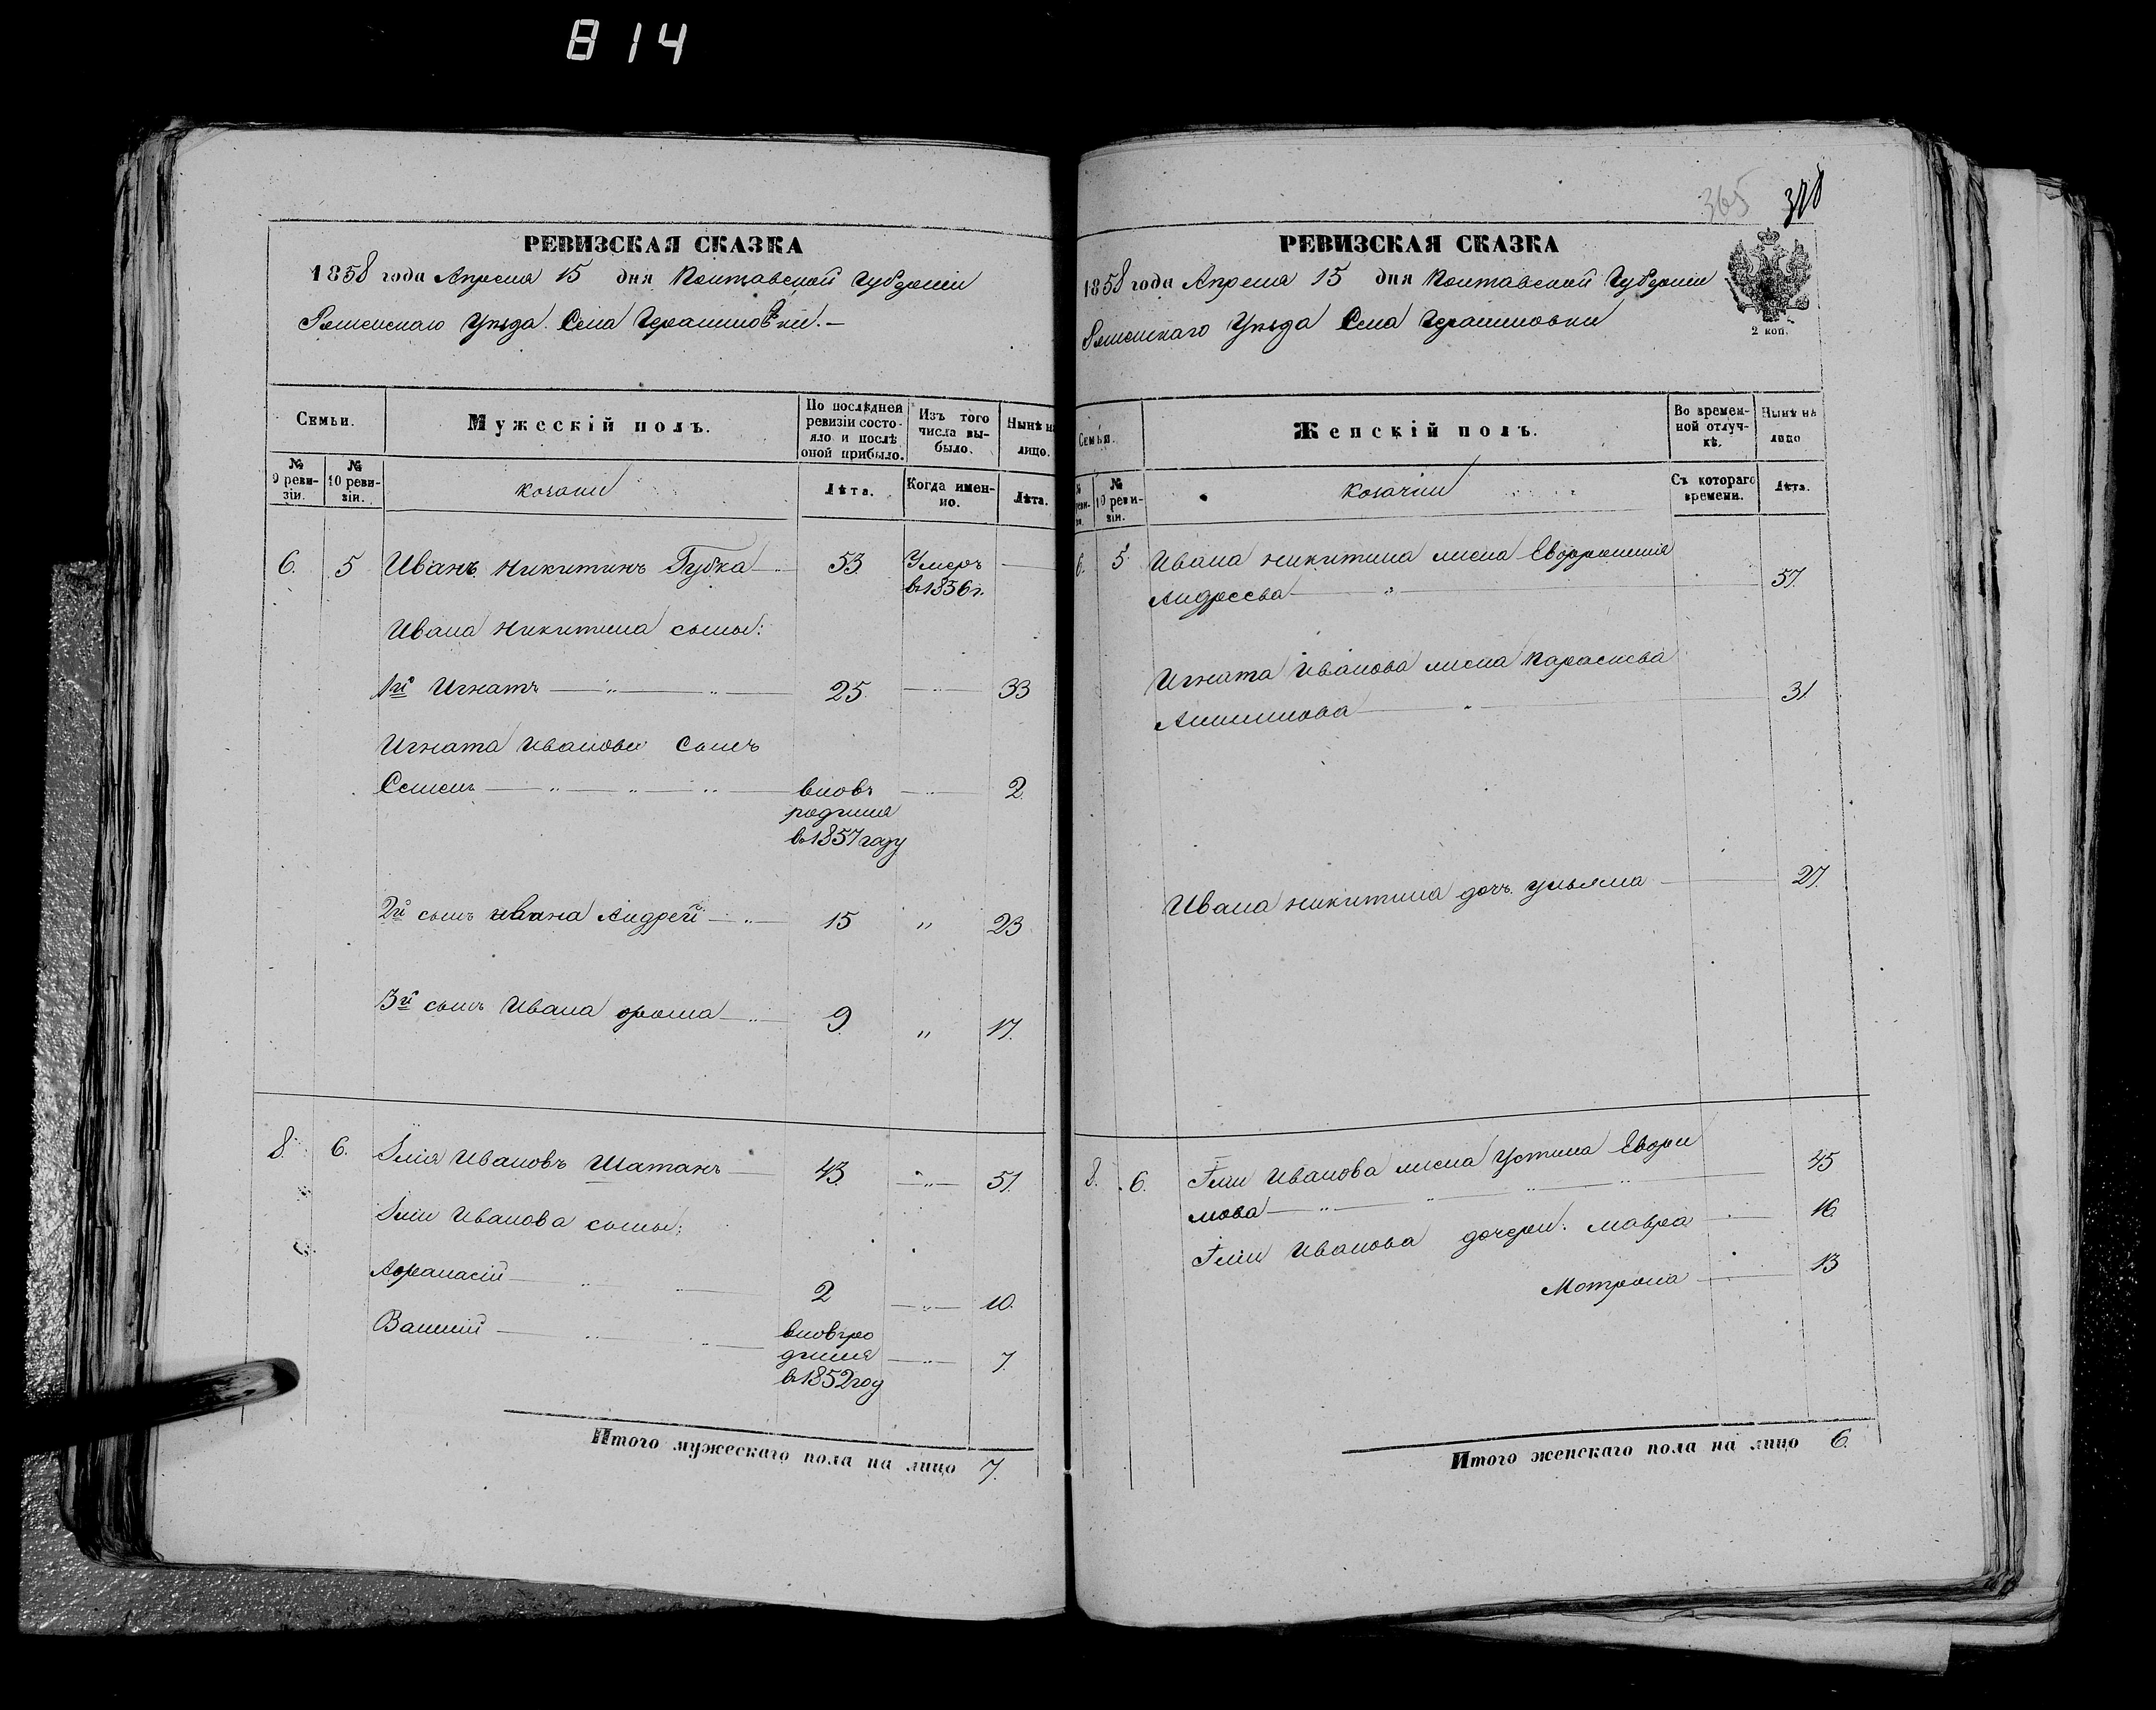 814
РЕВИЗСКАЯ СКАЗКА
1858 года Апреля 15 дня Полтавской Губерніи
Роменскаго Уѣзда. Села Герасимовки.—
Семьи.
Мужескій полъ.
По послѣдней ревизіи состояло и послѣ оной прибыло.
Изъ того числа выбыло.
Нынѣ на лицо.
№ 9 ревизіи.
№ 10 ревизіи.
козаки
Лѣта.
Когда именно.
Лѣта.
6. 5 Иванъ Никитинъ Губка 53 Умеръ
в 1856 г.
Ивана Никитина сыны:
1й Игнатъ 25. 33
Игната Иванова Сынъ
Семенъ вновь 2
родился
в 1857 году
2й сынъ Ивана Андрей 15 " 23
3й сынъ Ивана 9 " 17.
8. 6. Илія Ивановъ Шатанъ 43 51.
Іліи Иванова сыны:
Афанасій 2 10.
Василій вновь ро
дился 7.
в 1852 год
Итого мужескаго пола на лицо 7.
365
РЕВИЗСКАЯ СКАЗКА
1858 года Апреля 15 дня Полтавской Губерніи
Роменскаго Уѣзда Села Герасимовки
2 коп.
Семьи.
Женскій полъ.
Во временной отлучкѣ.
Нынѣ на лицо
№ 10 ревизіи.
козачки
Съ котораго времени.
Лѣта.
6. 5 Ивана Никитина жена Евфросинія
Андреева 57.
Игната Иванова жена Параскева
31
Ивана Никитина дочь Ульяна 27.
8. 6. Іліи Иванова жена Устина Евфи
мова 45
Іліи Иванова дочери: Мавра 16
Мотрона 13
Итого женскаго пола на лицо 6.